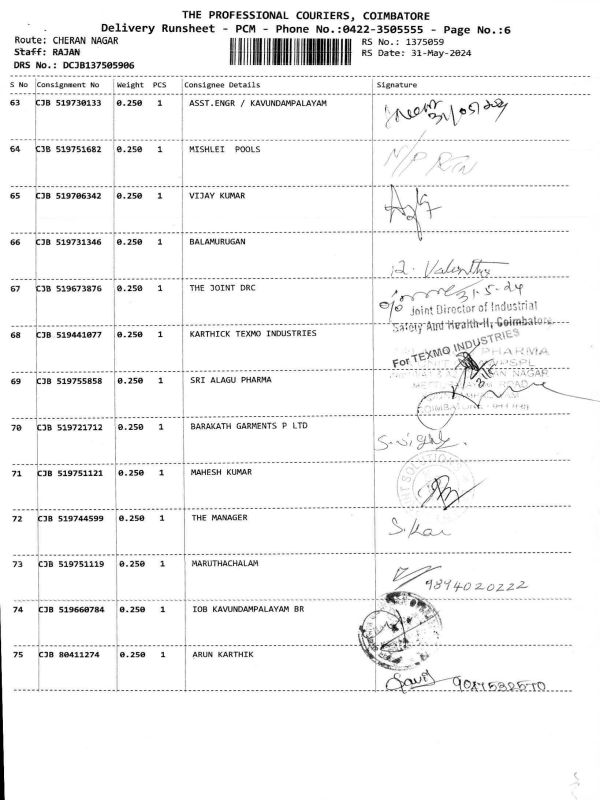 THE PROFESSIONAL COURIERS, COIMBATORE
Delivery Runsheet - PCM - Phone No.:0422-3505555 - Page No.:6
Route: CHERAN NAGAR RS No.: 1375059
Staff: RAJAN RS Date: 31-May-2024
DRS No.: DCJB137505906
S No Consignment No Weight PCS Consignee Details Signature
63 CJB 519730133 0.250 1 ASST.ENGR / KAVUNDAMPALAYAM 31/05/24
64 CJB 519751682 0.250 1 MISHLEI POOLS N/P
65 CJB 519706342 0.250 1 VIJAY KUMAR
66 CJB 519731346 0.250 1 BALAMURUGAN
67 CJB 519673876 0.250 1 THE JOINT DRC 31-5-24
o/o Joint Director of Industrial
Safety And Health-II, Coimbatore
68 CJB 519441077 0.250 1 KARTHICK TEXMO INDUSTRIES For TEXMO INDUSTRIES
PHARMA
69 CJB 519755858 0.250 1 SRI ALAGU PHARMA
70 CJB 519721712 0.250 1 BARAKATH GARMENTS P LTD
71 CJB 519751121 0.250 1 MAHESH KUMAR
72 CJB 519744599 0.250 1 THE MANAGER
73 CJB 519751119 0.250 1 MARUTHACHALAM 9894020222
74 CJB 519660784 0.250 1 IOB KAVUNDAMPALAYAM BR
75 CJB 80411274 0.250 1 ARUN KARTHIK